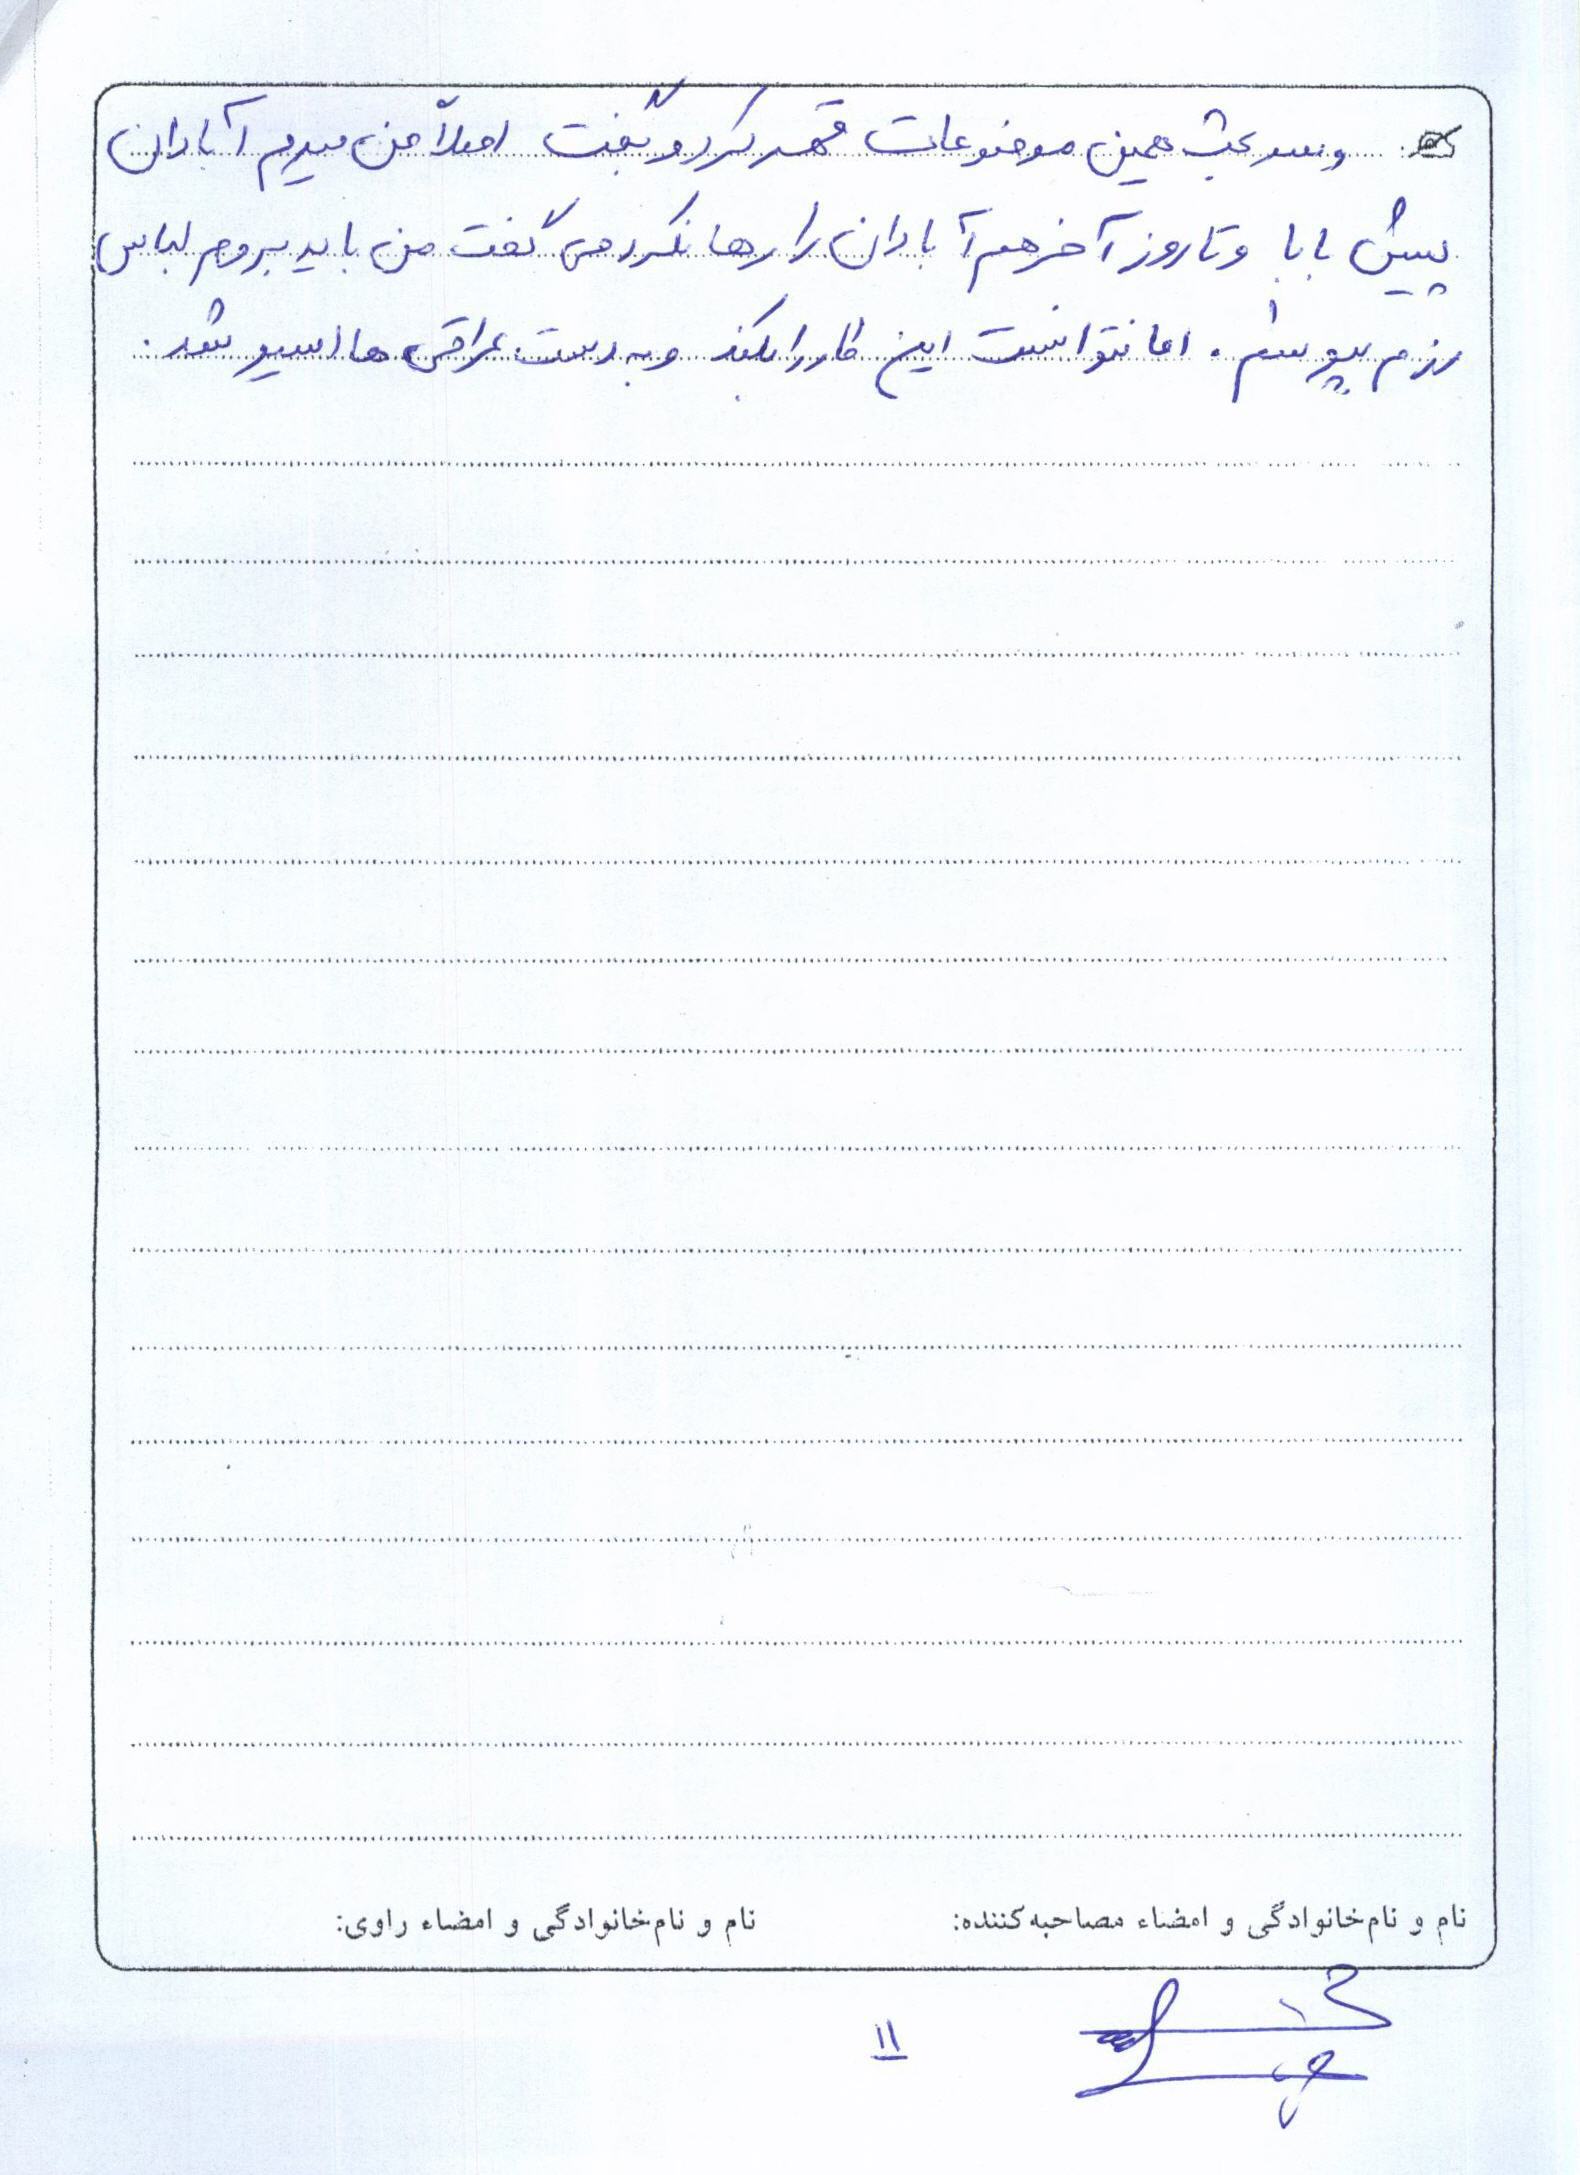 و سر بحث همین موضوعات قهر کرد و گفت اصلاً من میرم آبادان
پیش بابا و تا روز آخر هم آبادان را رها نکرد می گفت من باید بروم لباس
رزم بپوشم. اما نتوانست این کار را بکند و به دست عراقی ها اسیر شد.
نام و نام‌خانوادگی و امضاء مصاحبه‌کننده:
نام و نام‌خانوادگی و امضاء راوی:
۱۱